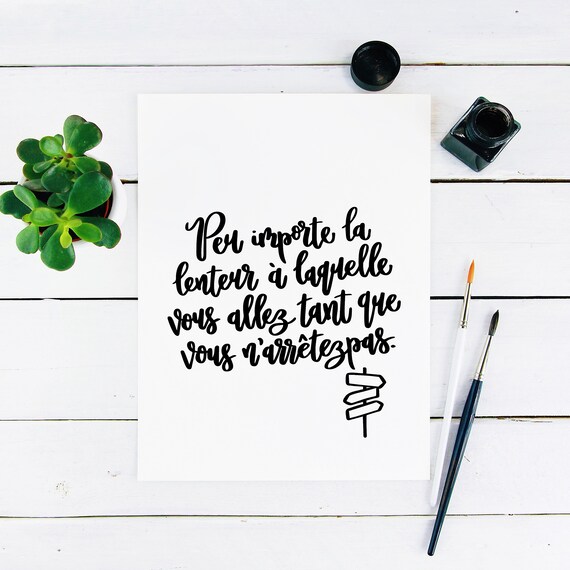 Peu importe la
lenteur à laquelle
vous allez tant que
vous n'arrêtez pas.